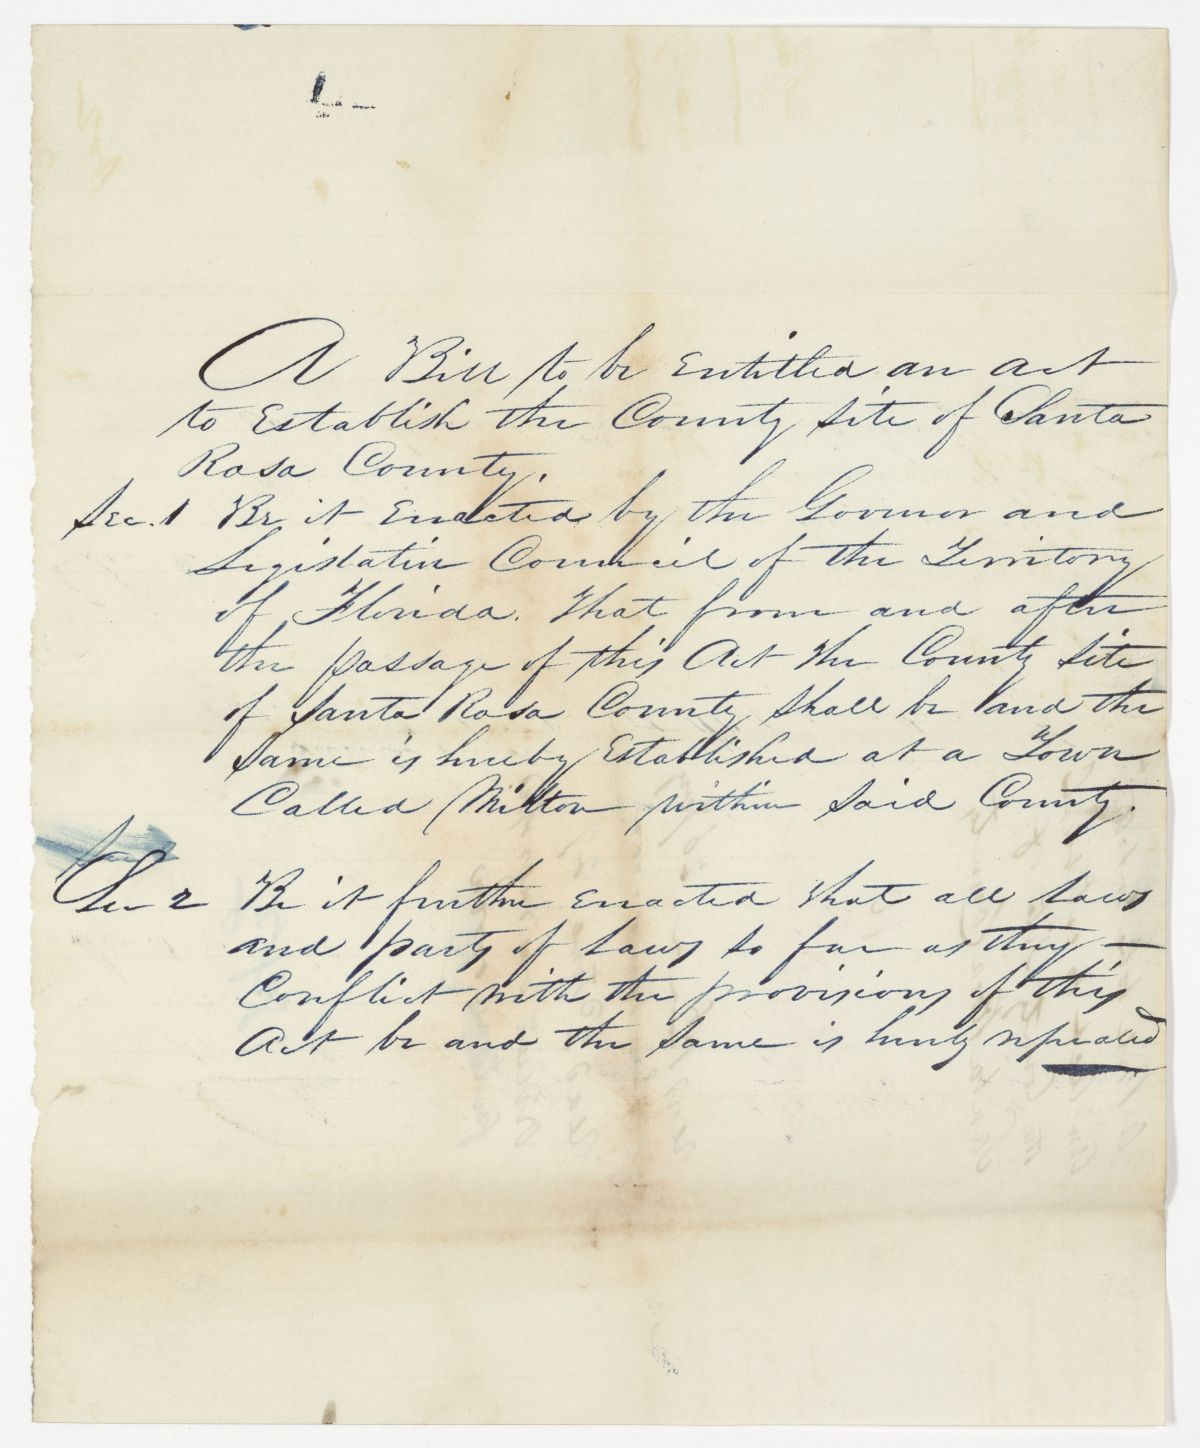 A Bill to be Entitled an act
to Establish the County Site of Santa
Rosa County.
Sec. 1 Be it Enacted by the Governor and
Legislative Council of the Territory
of Florida. That from and after
the passage of this Act the County Site
of Santa Rosa County shall be and the
same is hereby Established at a Town
Called Milton within said County.
Sec 2 Be it further Enacted that all Laws
and parts of Laws so far as they —
Conflict with the provisions of this
Act be and the same is hereby repealed